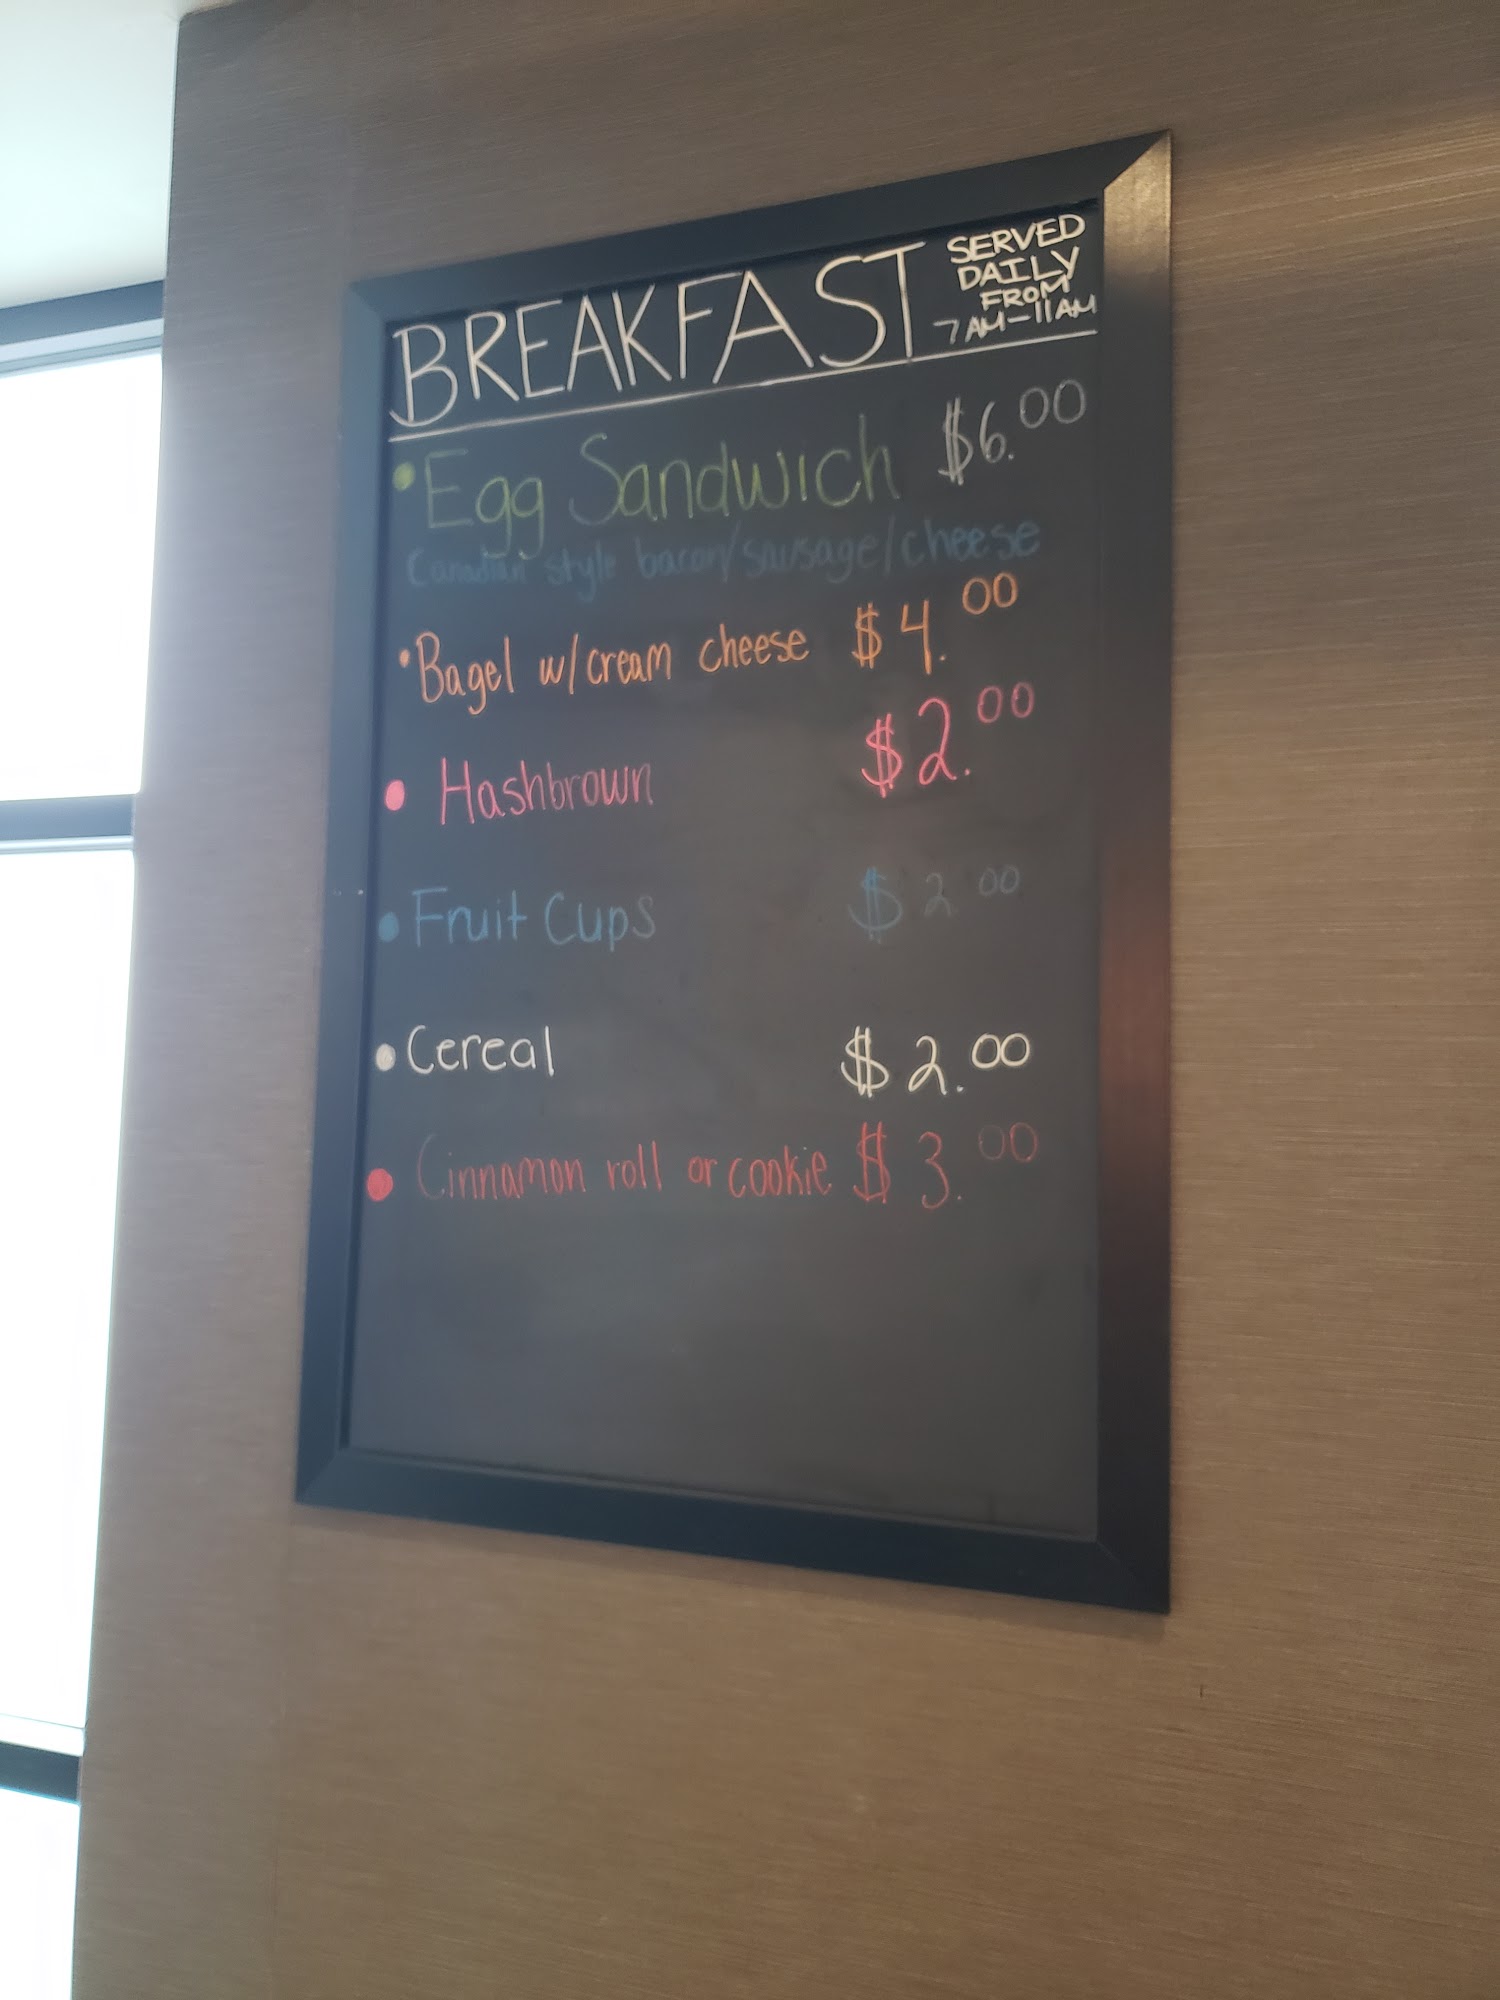 BREAKFAST
SERVED
DAILY
FROM
7AM-11AM
• Egg Sandwich $6.00
Canadian style bacon/sausage/cheese
• Bagel w/cream cheese $4.00
• Hashbrown $2.00
• Fruit Cups $2.00
• Cereal $2.00
• Cinnamon roll or cookie $3.00